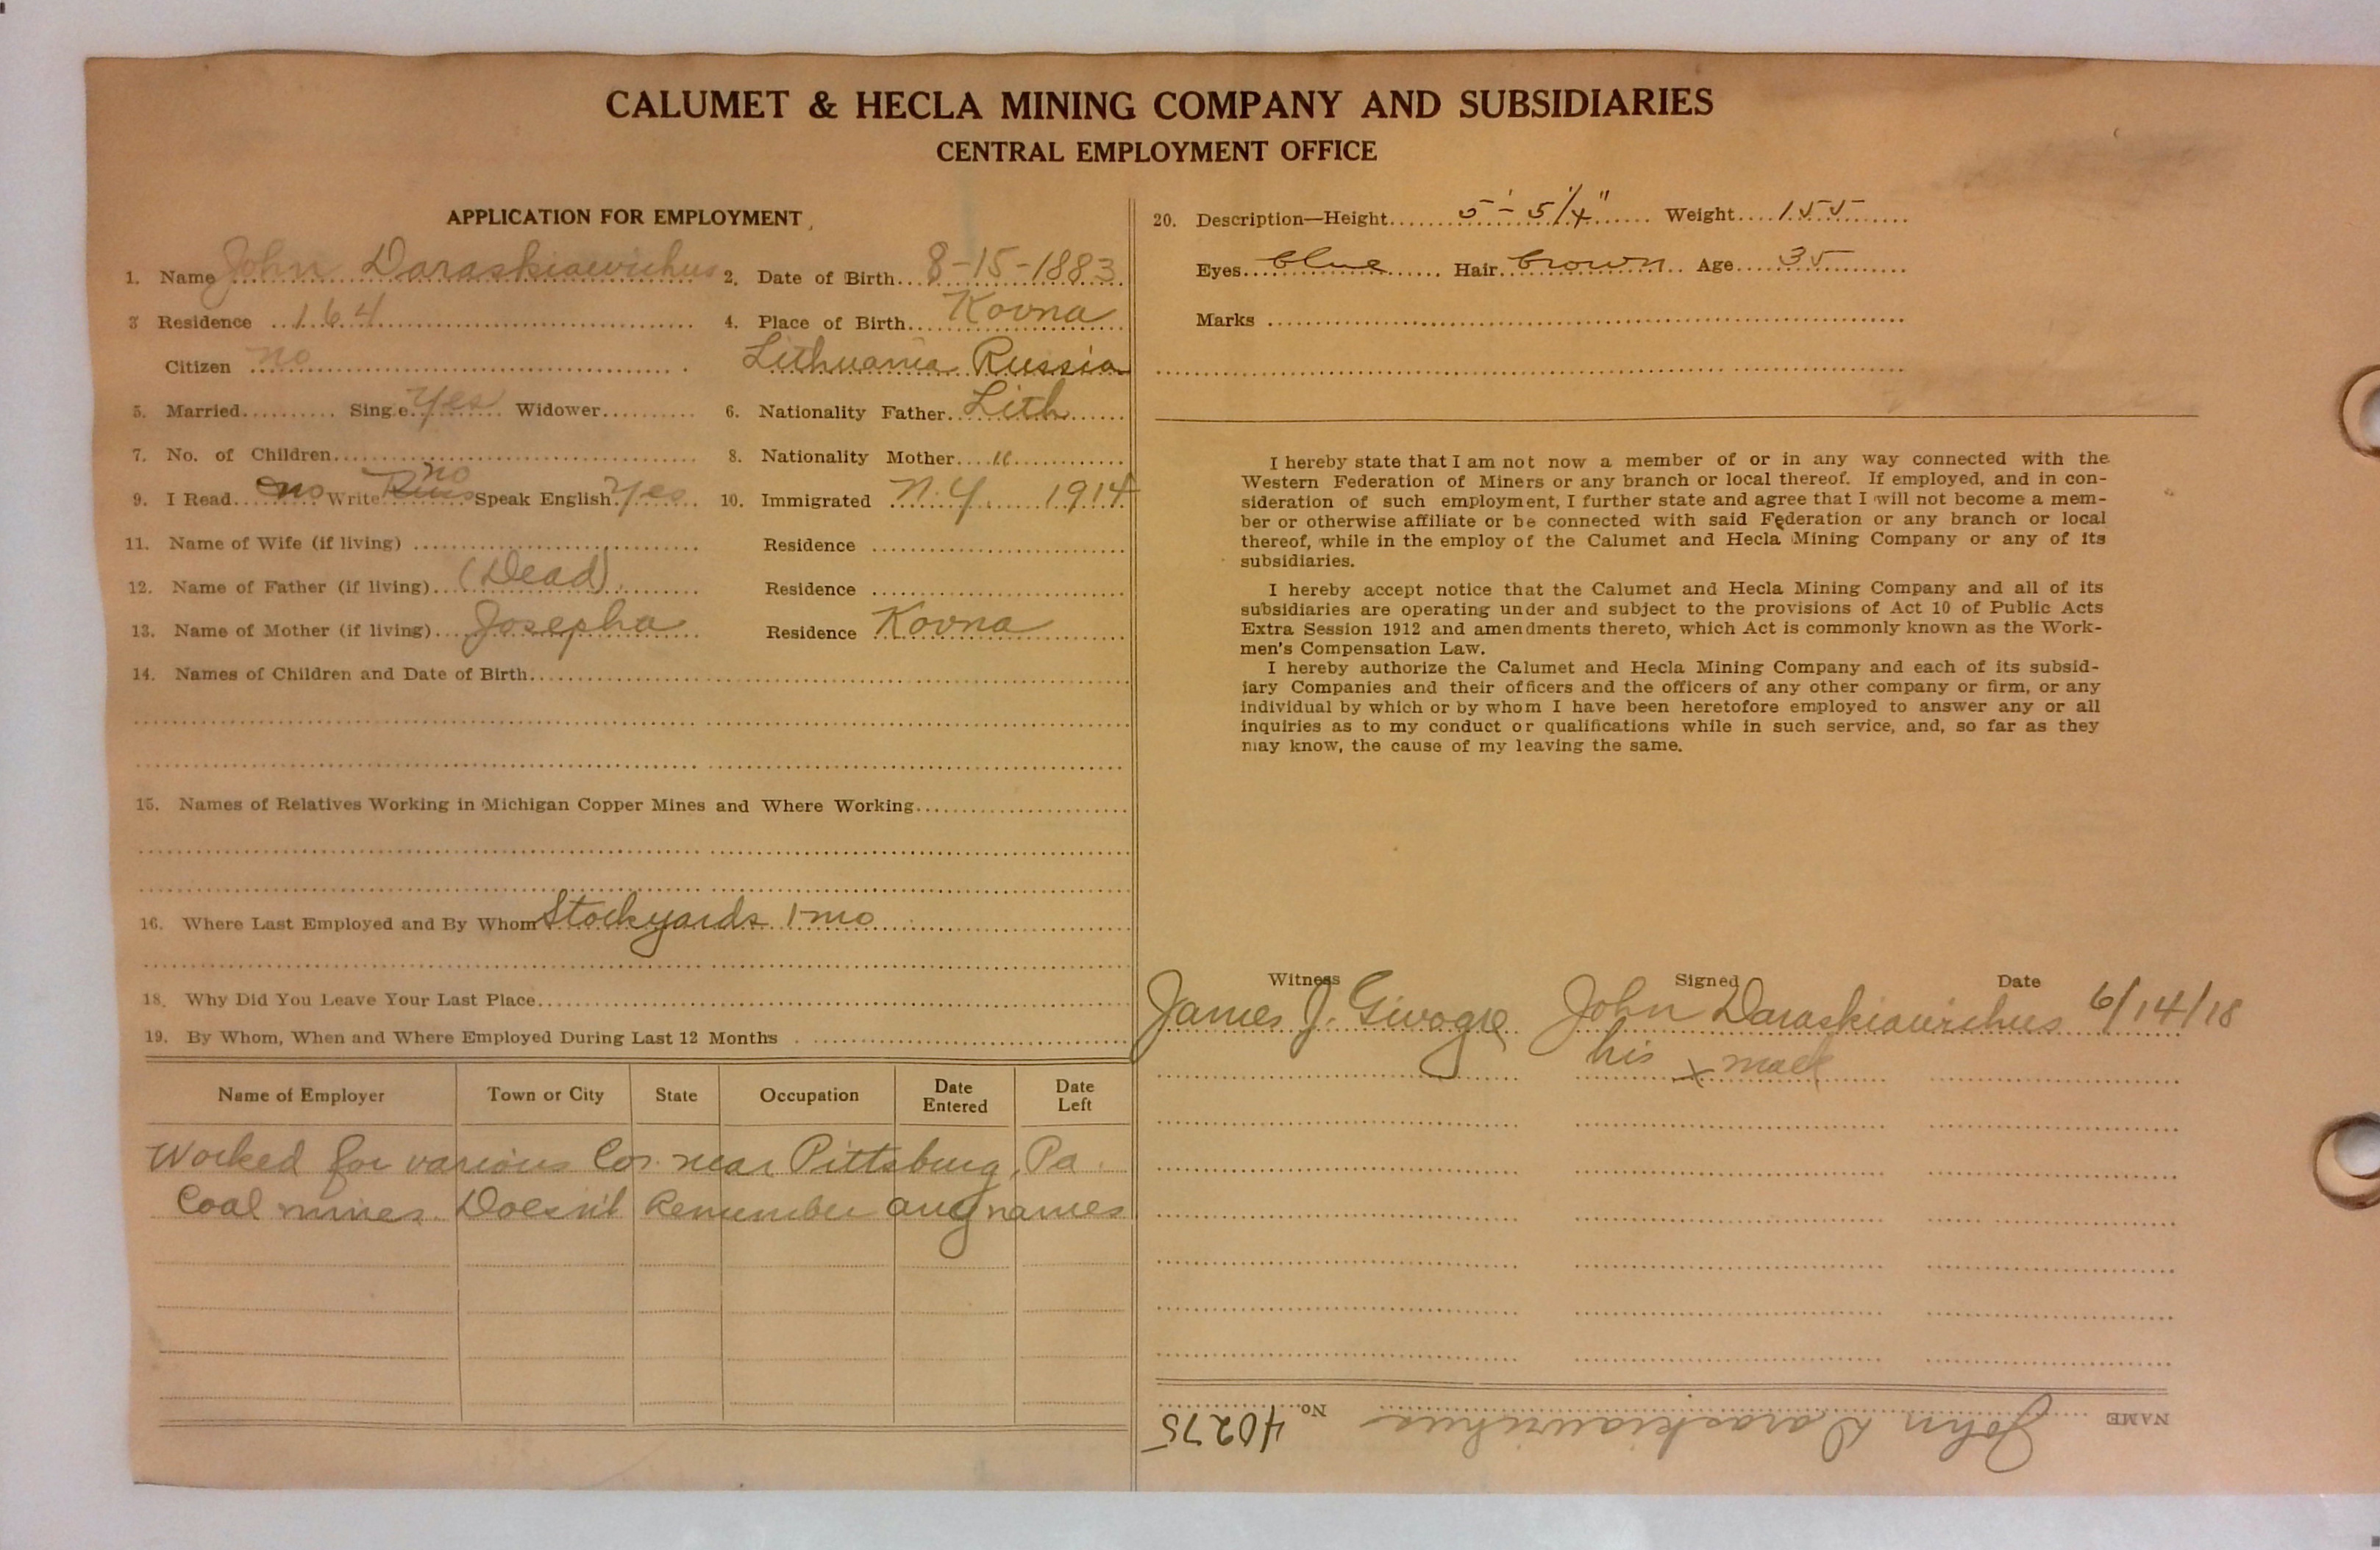 CALUMET & HECLA MINING COMPANY AND SUBSIDIARIES
CENTRAL EMPLOYMENT OFFICE
APPLICATION FOR EMPLOYMENT
1. Name John Daraskiawichus 2. Date of Birth 8-15-1883
3 Residence 164 4. Place of Birth Kovna
Citizen no Lithuania Russia
5. Married Single Yes Widower 6. Nationality Father Lith
7. No. of Children 8. Nationality Mother "
9. I Read no Write no Speak English Yes 10. Immigrated N.Y. 1914
11. Name of Wife (if living) Residence
12. Name of Father (if living) (Dead) Residence
13. Name of Mother (if living) Josepha Residence Kovna
14. Names of Children and Date of Birth
15. Names of Relatives Working in Michigan Copper Mines and Where Working
16. Where Last Employed and By Whom Stockyards 1 mo
18. Why Did You Leave Your Last Place
19. By Whom, When and Where Employed During Last 12 Months
Name of Employer Town or City State Occupation Date Entered Date Left
Worked for various Cos. near Pittsburg, Pa.
Coal mines. Doesn't Remember any names
20. Description—Height 5'-5 1/4" Weight 155
Eyes blue Hair brown Age 35
Marks
I hereby state that I am not now a member of or in any way connected with the
Western Federation of Miners or any branch or local thereof. If employed, and in con-
sideration of such employment, I further state and agree that I will not become a mem-
ber or otherwise affiliate or be connected with said Federation or any branch or local
thereof, while in the employ of the Calumet and Hecla Mining Company or any of its
subsidiaries.
I hereby accept notice that the Calumet and Hecla Mining Company and all of its
subsidiaries are operating under and subject to the provisions of Act 10 of Public Acts
Extra Session 1912 and amendments thereto, which Act is commonly known as the Work-
men's Compensation Law.
I hereby authorize the Calumet and Hecla Mining Company and each of its subsid-
iary Companies and their officers and the officers of any other company or firm, or any
individual by which or by whom I have been heretofore employed to answer any or all
inquiries as to my conduct or qualifications while in such service, and, so far as they
may know, the cause of my leaving the same.
Witness Signed Date
James J. Givogre John Daraskiawichus 6/14/18
his x mark
NAME John Daraskiawichus No. 40275